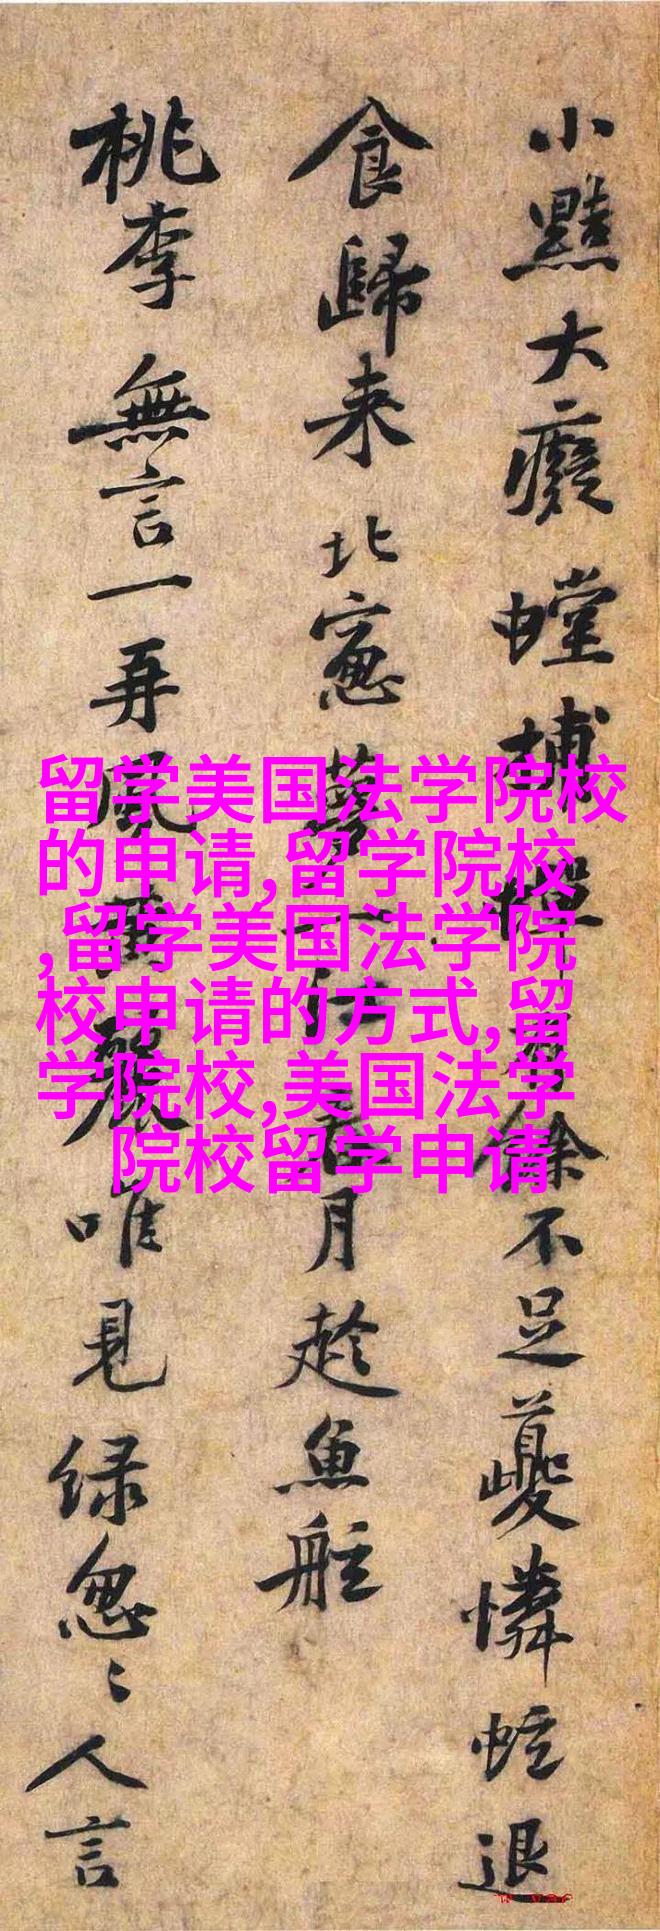 小黠大癡螳捕蟬有餘不足夔憐蚿退
食歸来北窓夢一江春月趁魚船
桃李無言一再風黃鸝唯見緑怱〻人言
留学美国法学院校
的申请,留学院校
,留学美国法学院
校申请的方式,留
学院校,美国法学
院校留学申请